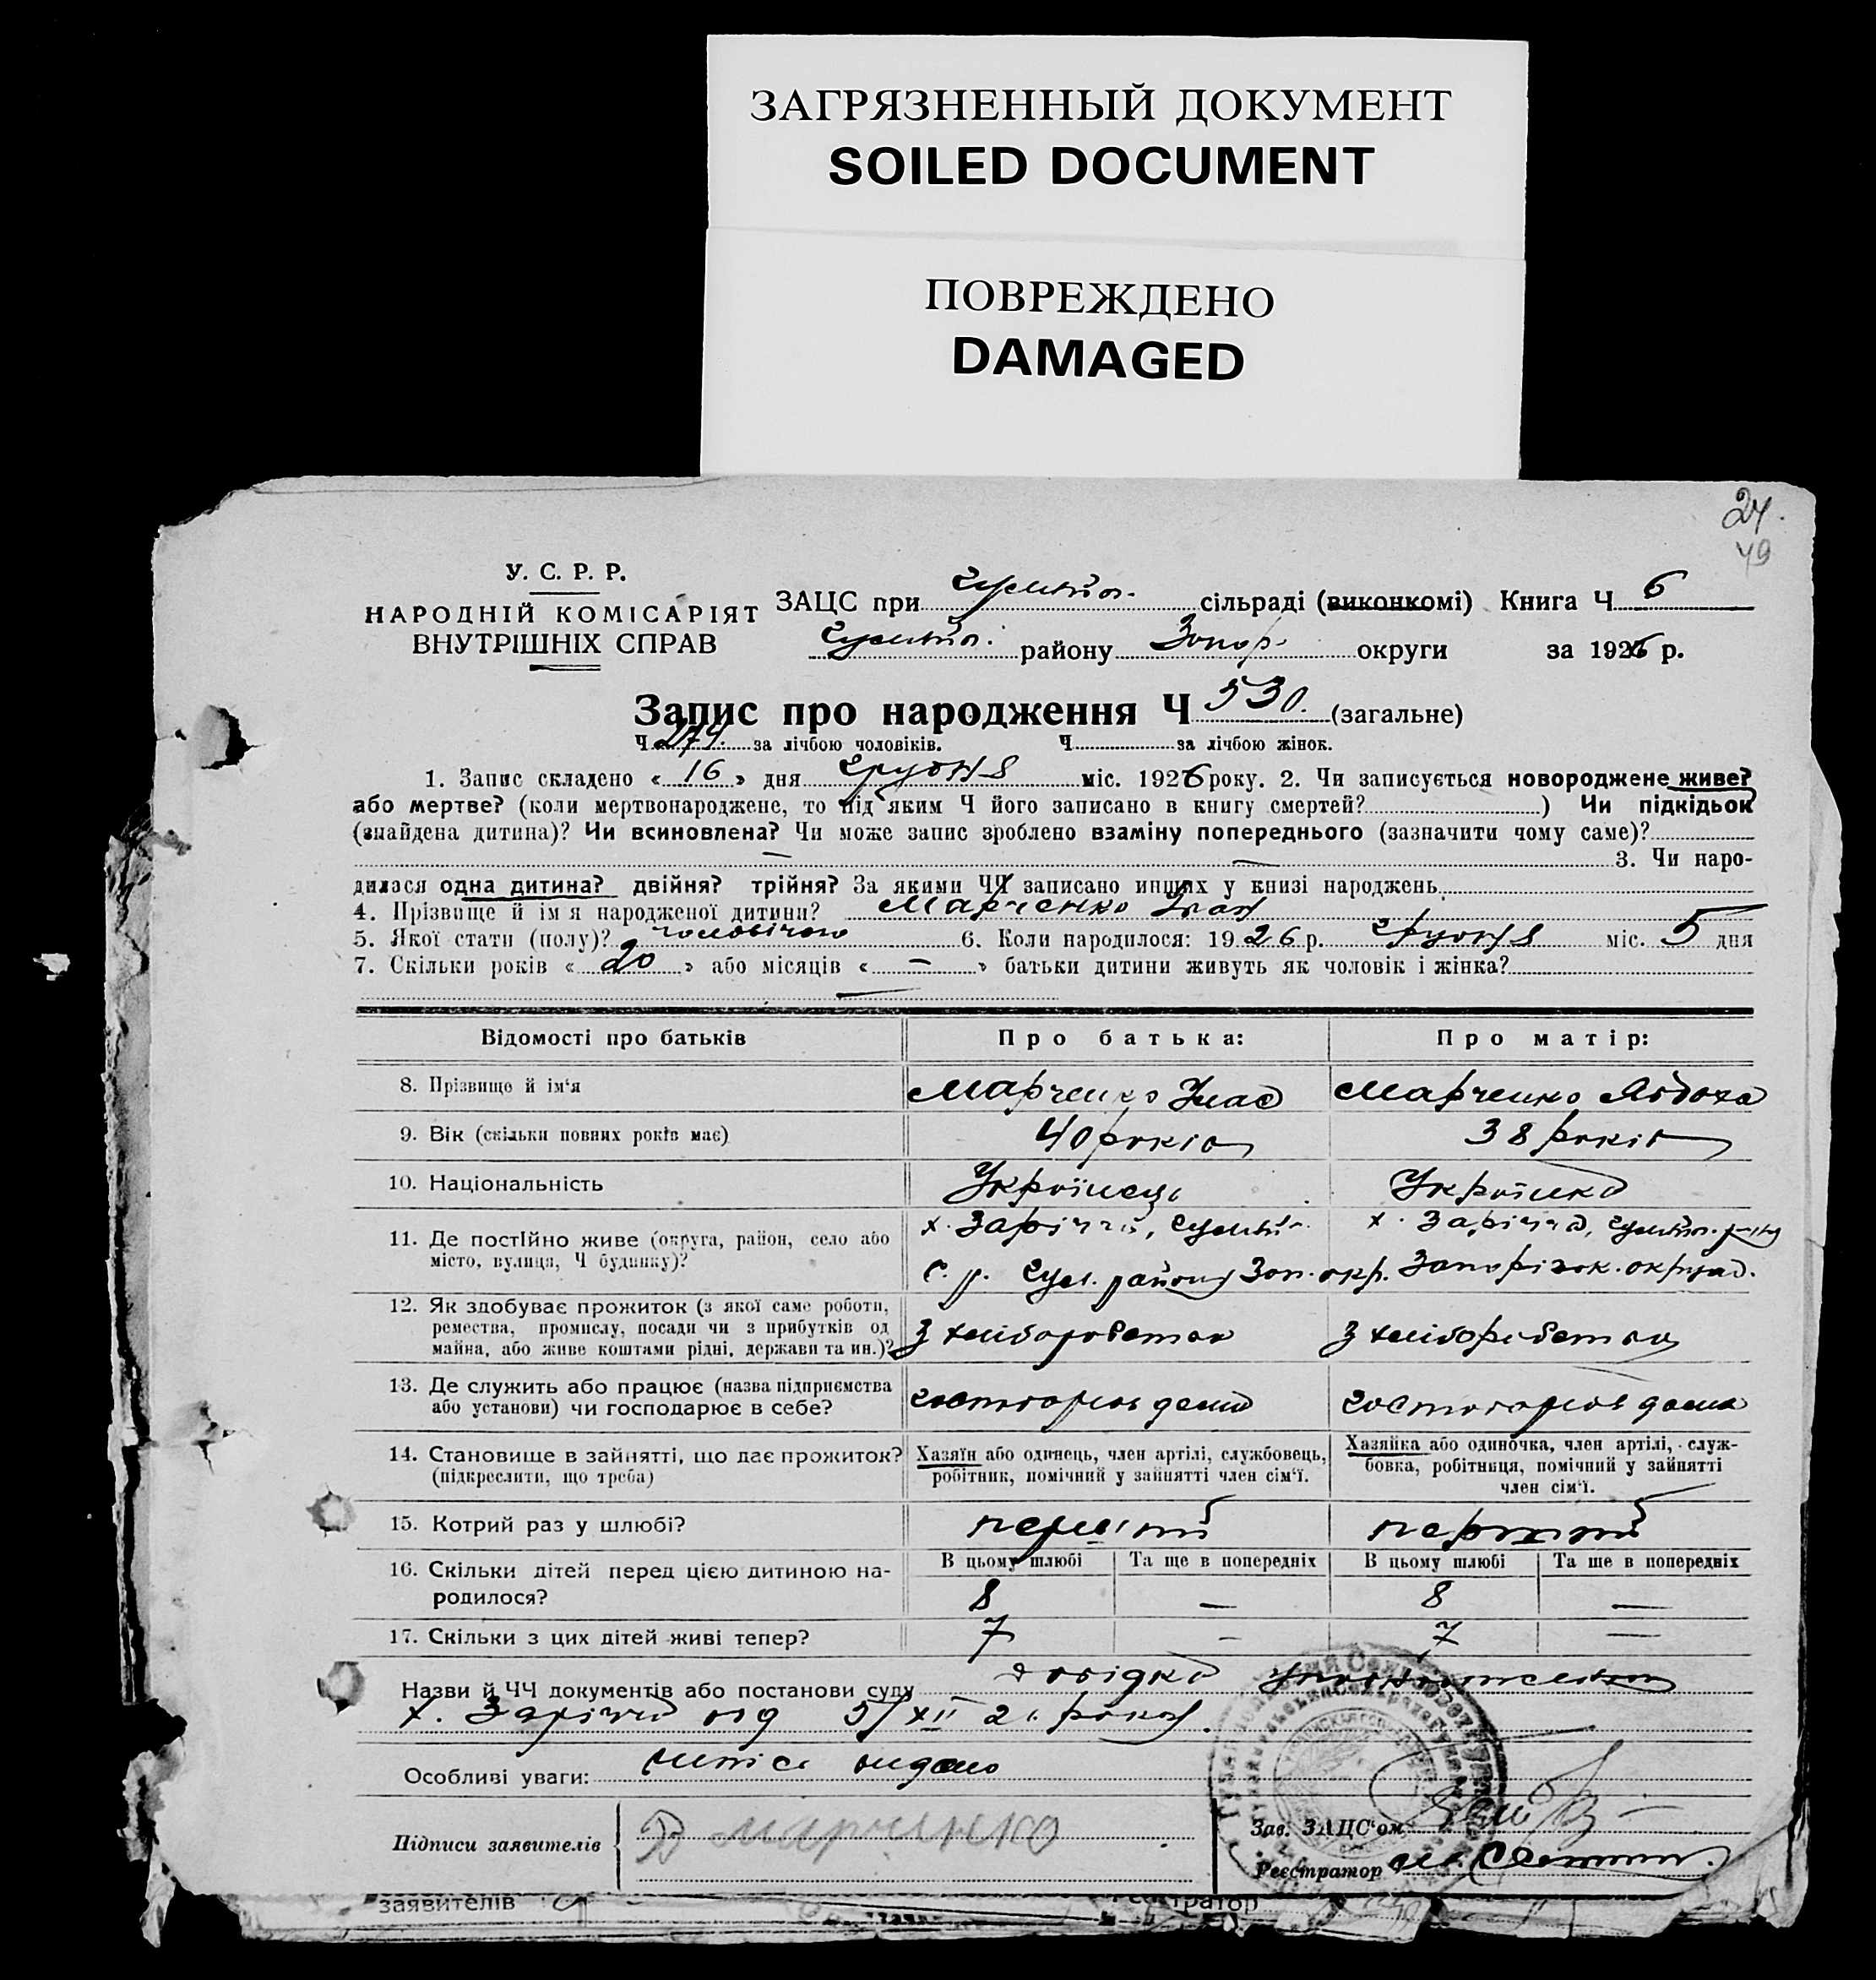 ЗАГРЯЗНЕННЫЙ ДОКУМЕНТ
SOILED DOCUMENT
ПОВРЕЖДЕНО
DAMAGED
24.
49
У. С. Р. Р.
НАРОДНІЙ КОМІСАРІЯТ
ВНУТРІШНІХ СПРАВ
ЗАЦС при сільраді (виконкомі) Книга Ч 6
району Запор. округи за 1926 р.
Запис про народження Ч 530. (загальне)
Ч 274. за лічбою чоловіків. Ч за лічбою жінок.
1. Запис складено « 16 » дня грудня міс. 1926 року. 2. Чи записується новороджене живе?
або мертве? (коли мертвонароджене, то під яким Ч його записано в книгу смертей?) Чи підкідьок
(знайдена дитина)? Чи всиновлена? Чи може запис зроблено взаміну попереднього (зазначити чому саме)?
— — 3. Чи наро-
дилася одна дитина? двійня? трійня? За якими ЧЧ записано инших у книзі народжень
4. Прізвище й імя народженої дитини? Марченко Іван
5. Якої стати (полу)? чоловічого 6. Коли народилося: 1926 р. грудня міс. 5 дня
7. Скільки років « 20 » або місяців « — » батьки дитини живуть як чоловік і жінка?
—
Відомості про батьків Про батька: Про матір:
8. Прізвище й ім‘я Марченко Марченко Явдоха
9. Вік (скільки повних років має) 40 років 38 років
10. Національність Українець Українка
11. Де постійно живе (округа, район, село або місто, вулиця, Ч будинку)?
х. Заріччя, х. Заріччя,
с. р. району Зап. окр. Запоріжок. округа.
12. Як здобуває прожиток (з якої саме роботи,
ремества, промислу, посади чи з прибутків од
майна, або живе коштами рідні, держави та ин.)? З хліборобства З хліборобства
13. Де служить або працює (назва підприємства
або установи) чи господарює в себе? господарює дома господарює дома
14. Становище в зайнятті, що дає прожиток?
(підкреслити, що треба)
Хазяїн або одинець, член артілі, службовець,
робітник, помічний у зайнятті член сім‘ї.
Хазяйка або одиночка, член артілі, служ-
бовка, робітниця, помічний у зайнятті
член сім‘ї.
15. Котрий раз у шлюбі? перший перший
16. Скільки дітей перед цією дитиною на-
родилося?
В цьому шлюбі Та ще в попередніх В цьому шлюбі Та ще в попередніх
8 — 8 —
17. Скільки з цих дітей живі тепер? 7 — 7 —
Назви й ЧЧ документів або постанови суду довідка уповноваженого
х. Заріччя від 5/XII 26 року.
Особливі уваги: видано
Підписи заявителів В Марченко
Зав. ЗАЦС‘ом
Реєстратор
заявителів